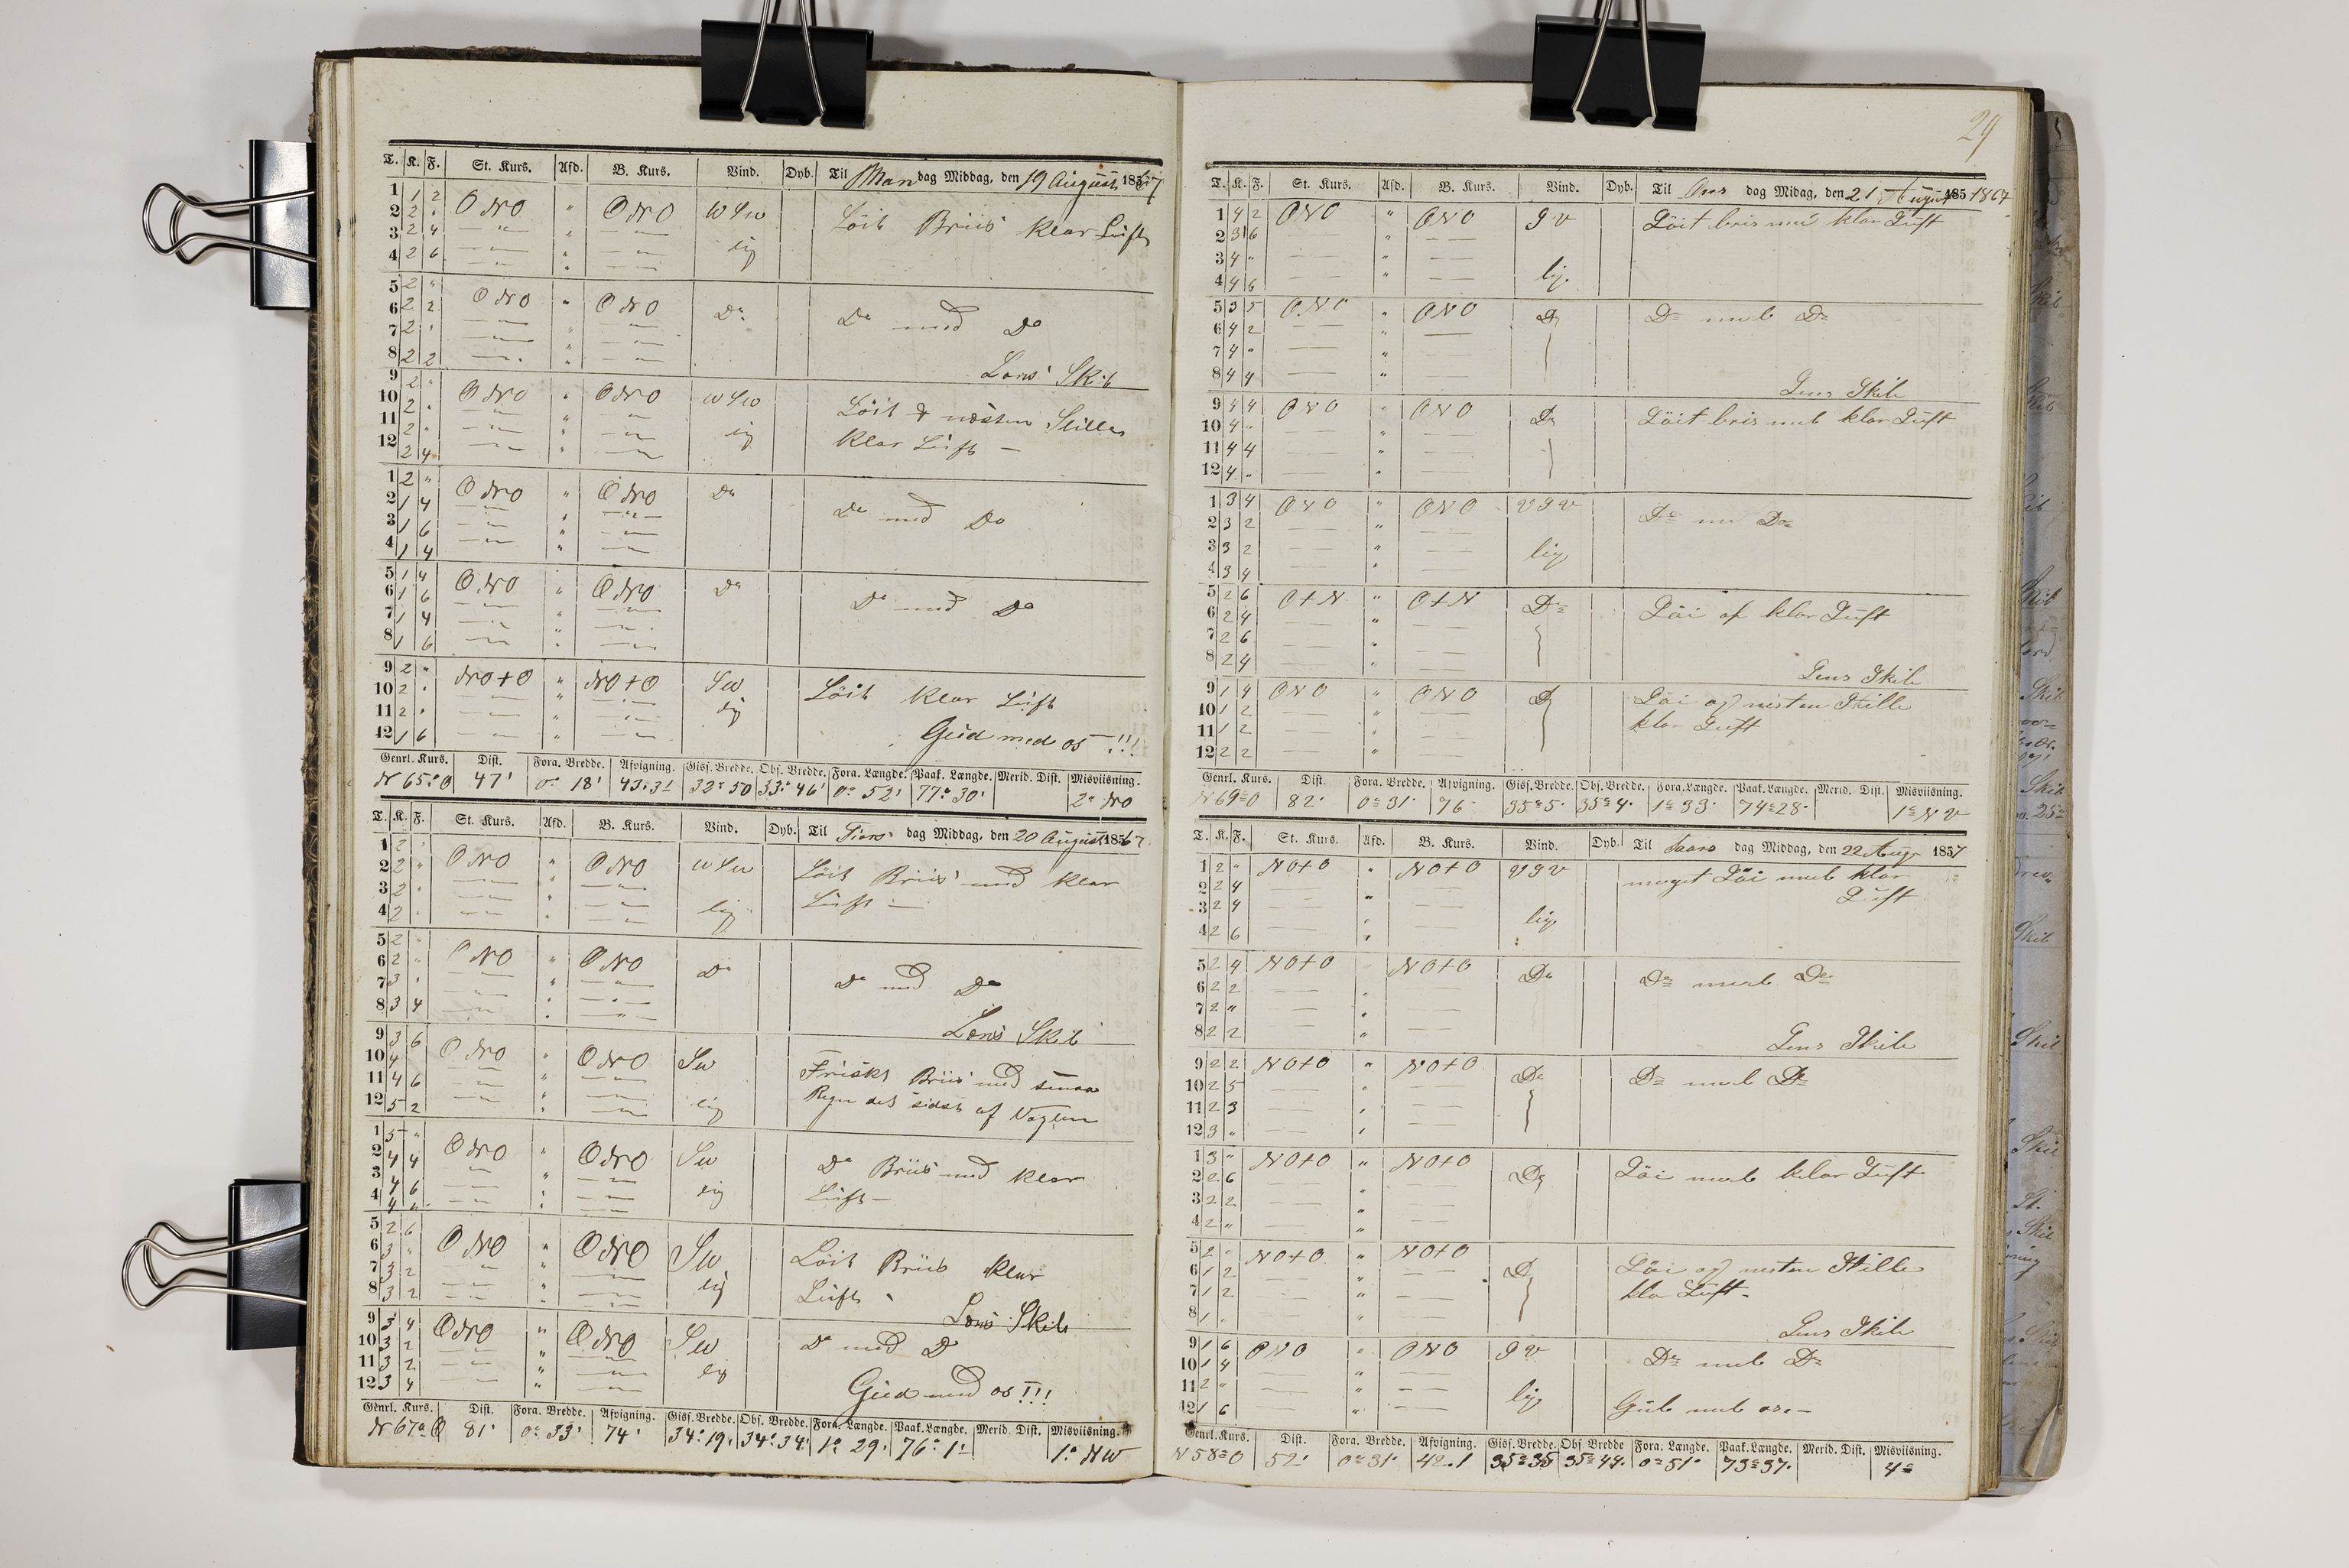 T. K. F. St. Kurs. Afd. B. Kurs. Vind. Dyb. Til Man dag Middag, den 19 August 1867
1 1 2 ONO " ONO WSW Löit Briis klar Luft
2 2 "
3 2 4
4 2 6 lig
5 2 " ONO " ONO Do Do med Do
6 2 2
7 2 "
8 2 2 Lens Skib
9 2 " ONO " ONO WSW Löit & næsten Stille
10 2 " klar Luft —
11 2 " lig
12 2 4
1 2 " ONO " ONO Do Do med Do
2 1 4
3 1 6
4 1 4
5 1 4 ONO " ONO Do Do med Do
6 1 6
7 1 4
8 1 6
9 2 " NO+O " NO+O SW Löit klar Luft
10 2 " lig
11 2 " Gud med os !!!
12 1 6
Genrl. Kurs. Dist. Fora. Bredde. Afvigning. Gisf. Bredde. Obs. Bredde. Fora. Længde. Paak. Længde. Merid. Dist. Misviisning.
N 65° O 47' 0° 18' 43.31 32° 50 33° 46' 0° 52' 77° 30' 2° NO
T. K. F. St. Kurs. Afd. B. Kurs. Vind. Dyb. Til Tirs dag Middag, den 20 August 1867
1 2 " ONO " ONO WSW Löit Briis med klar
2 2 " Luft —
3 2 "
4 2 " lig
5 2 " ONO " ONO Do Do med Do
6 2 "
7 3 "
8 3 4 Lens Skib
9 3 6 ONO " ONO SW Frisks Briis med smaa
10 4 " Regn det sidst af Vagten
11 4 6
12 5 2 lig
1 5 " ONO " ONO SW Do Briis med klar
2 4 4 Luft —
3 4 6 lig
4 4 "
5 2 6 ONO " ONO SW Löit Briis klar
6 3 " Luft
7 3 2 lig
8 3 2 Lens Skib
9 3 4 ONO " ONO SW Do med Do
10 3 2
11 3 2 lig Gud med os !!!
12 3 4
Genrl. Kurs. Dist. Fora. Bredde. Afvigning. Gisf. Bredde. Obs. Bredde. Fora. Længde. Paak. Længde. Merid. Dist. Misviisning.
N 67° O 81' 0° 33' 74' 34° 19' 34° 34' 1° 29' 76° 1' 1° NW
29
T. K. F. St. Kurs. Afd. B. Kurs. Vind. Dyb. Til Ons dag Midag, den 21 August 1851867
1 4 2 ONO " ONO SV Löit bris med klar Luft
2 3 6
3 4 "
4 4 6 lig.
5 3 5 ONO " ONO Do Do med Do
6 4 2
7 4 "
8 4 4 Lens Skib
9 4 4 ONO " ONO Do Löit bris med klar Luft
10 4 "
11 4 4
12 4 "
1 3 4 ONO " ONO VSV Do med Do
2 3 2
3 3 2 lig
4 3 4
5 2 6 O+N " O+N Do Löi af klar Luft
6 2 4
7 2 6
8 2 4 Lens Skib
9 1 4 ONO " ONO Do Löi og nesten Stille
10 1 2 klar Luft
11 1 2
12 2 2
Genrl. Kurs. Dist. Fora. Bredde. Afvigning. Gisf. Bredde. Obs. Bredde. Fora. Længde. Paak. Længde. Merid. Dist. Misviisning.
N 69° O 82' 0° 31' 76 35° 5' 35° 4' 1° 33' 74° 28' 1° NV
T. K. F. St. Kurs. Afd. B. Kurs. Vind. Dyb. Til Taars dag Middag, den 22 Aug 1857
1 2 " NO+O " NO+O VSV meget Löi med klar
2 2 4 Luft
3 2 4 lig
4 2 6
5 2 4 NO+O NO+O Do Do med Do
6 2 2
7 2 "
8 2 2 Lens Skib
9 2 2 NO+O " NO+O Do Do med Do
10 2 5
11 2 3
12 3 "
1 3 " NO+O " NO+O Do Löi med klar Luft
2 2 6
3 2 2
4 2 "
5 2 " NO+O " NO+O Do Löi og nesten Stille
6 1 2 klar Luft.
7 1 2
8 1 " Lens Skib
9 1 6 ONO " ONO SV Do med Do
10 1 4
11 2 " lig Gud med os. —
12 1 6
Genrl. Kurs. Dist. Fora. Bredde. Afvigning. Gisf. Bredde. Obs. Bredde Fora. Længde. Paak. Længde. Merid. Dist. Misviisning.
N 58° O 52' 0° 31' 42.1 35° 35 35° 44' 0° 51' 73° 37' 4°